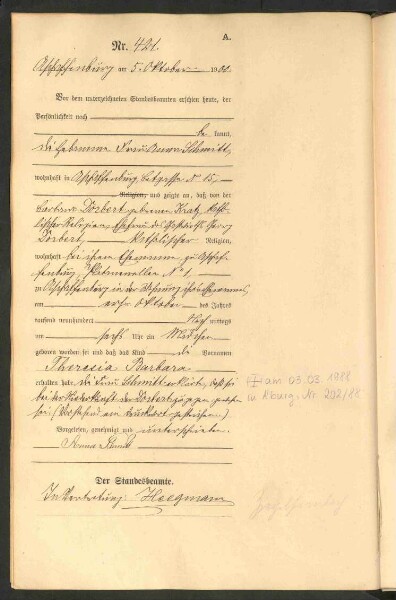 A.
Nr. 421.
Aschaffenburg am 5. Oktober 1900.
Vor dem unterzeichneten Standesbeamten erschien heute, der
Persönlichkeit nach
be kannt,
die Hebamme Frau Anna Schmitt,
wohnhaft in Aschaffenburg N° 15,
Religion, und zeigte an, daß von der
Barbara Dörbert geborenen Kratz, katho-
lischer Religion, Ehefrau des Georg
Dörbert, katholischer Religion,
wohnhaft bei ihrem Ehemanne zu Aschaf-
fenburg, N° 1,
zu Aschaffenburg in der Wohnung ihres Ehemannes,
am Oktober des Jahres
tausend neunhundert Nach mittags
um sechs Uhr ein Mädchen
geboren worden sei und daß das Kind die Vornamen
Theresia Barbara
erhalten habe. die Frau Schmitt erklärte, daß sie
bei der Niederkunft der Dörbert zugegen gewesen
sei. (Vorstehend ein Druckwort gestrichen.)
Vorgelesen, genehmigt und unterschrieben.
Anna Schmitt
Der Standesbeamte.
In Vertretung: Heegmann
am 03.03.1988
in Aburg. Nr. 202/88